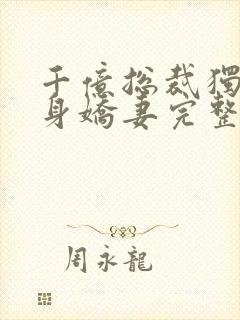 千億總裁獨
身嬌妻完整
周永龍